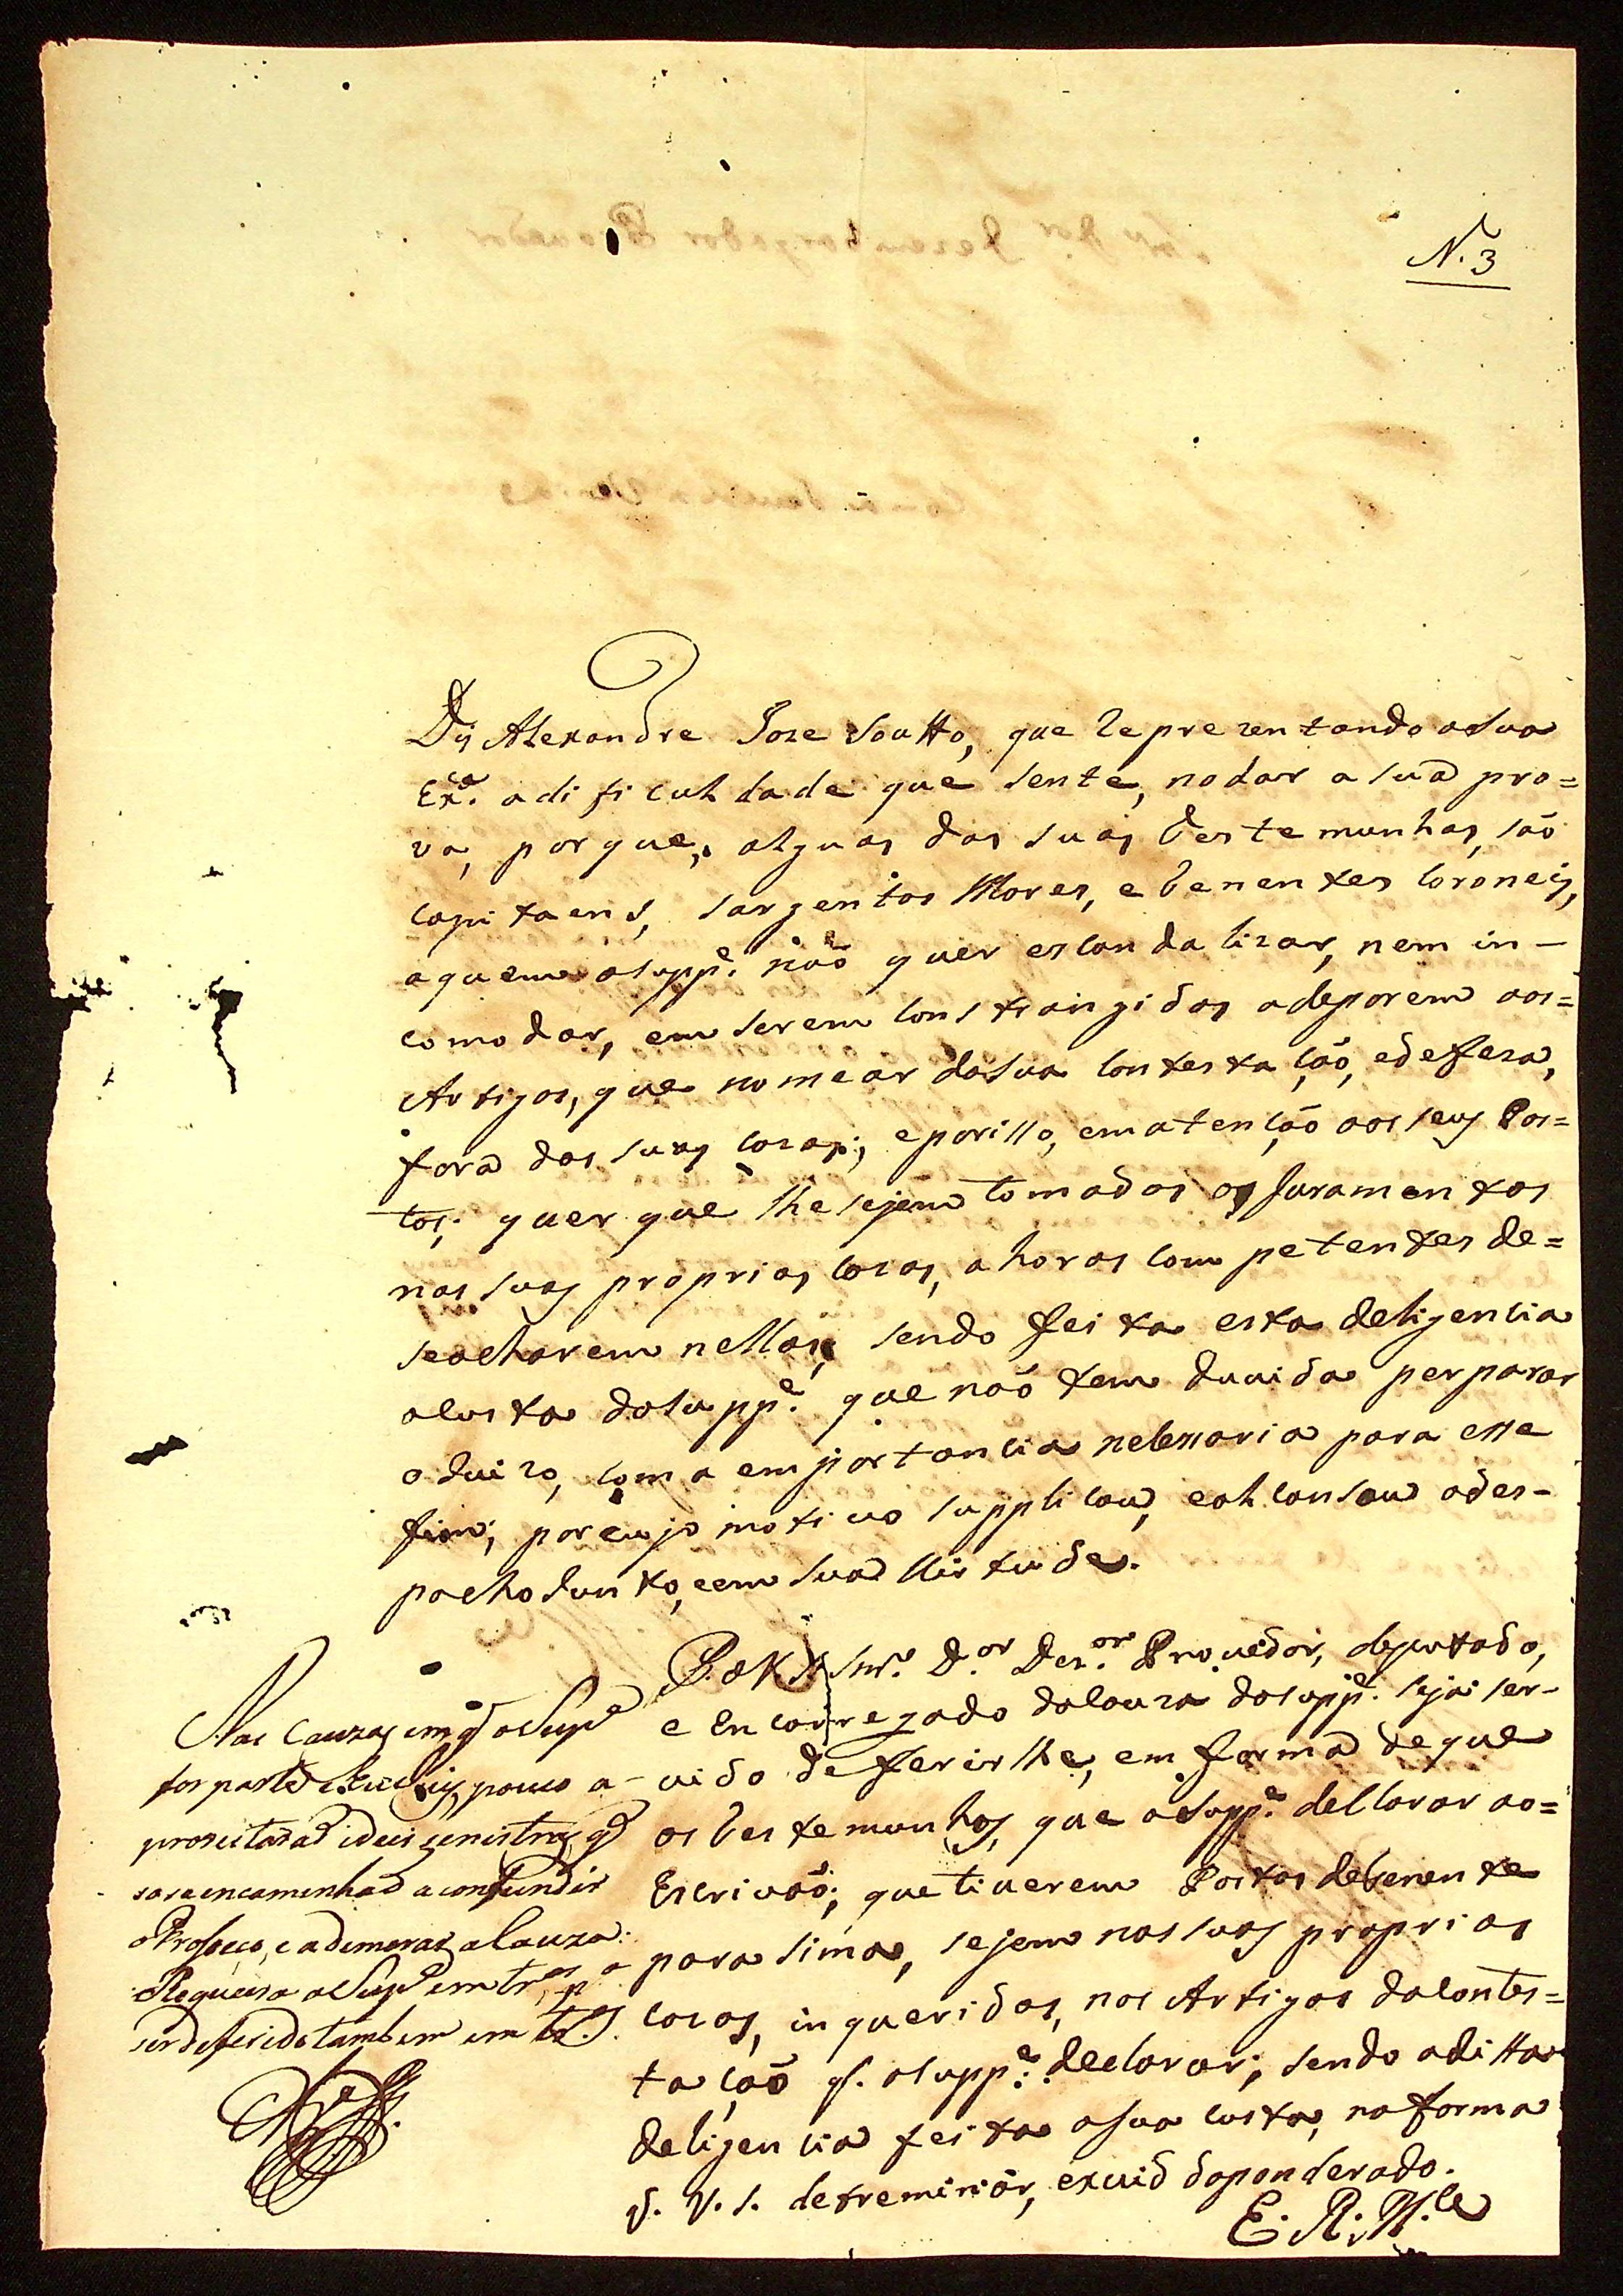 N. 3
Dis Alexandre Joze Soutto, que reprezentando a Sua
Ex.ª a dificuldade que sente, no dar a sua pro=
va, porque, alguas das suas testemunhas, saõ
Capitaens, Sargentos Mores, e Tenentes Coroneis,
a quem o supp.e naõ quer escandalizar, nem in-
comodar, em serem constrangidas a deporem aos=
Artigos, que nomear da sua Contestaçaõ, e defeza,
fora das suas Cazas; e por isso, em atençaõ aos seus Pos=
tos; quer que lhe sejem tomados os Juramentos
nas suas proprias cazas, a horas competentes de=
se acharem nellas, sendo feita esta deligencia
a custa do Supp.e que naõ tem duvida perparar
o Juizo, com a emportancia necessaria para esse
fim; por cujo motivo supplicou, e alcansou o des-
pacho Junto, e em sua Virtude.
Snr. D.or Dez.or Provedor, deputado,
e encarregado da Cauza do supp.e seja ser-
vido deferir lhe, em forma de que
as testemunhas, que o Supp.e declarar ao=
Escrivaõ; que tiverem Postos de tenente
para sima, sejem nas suas proprias
cazas, inqueridas, nos Artigos da Contes=
taçaõ q. o supp.e declarar; sendo a ditta
deligencia feita a sua custa, na forma
q. V. S. detreminar, exvid do ponderado.
E. R. M.ce
Nas Cauzas em q o Supp.e
for parte pouco a-
proveitaraõ ideis senistras q
so se encaminhaõ a confundir
o Prosseco, e a demorar a Cauza:
Requeira o Supp.e em tr.os p.a
ser deferido tambem em tr.os